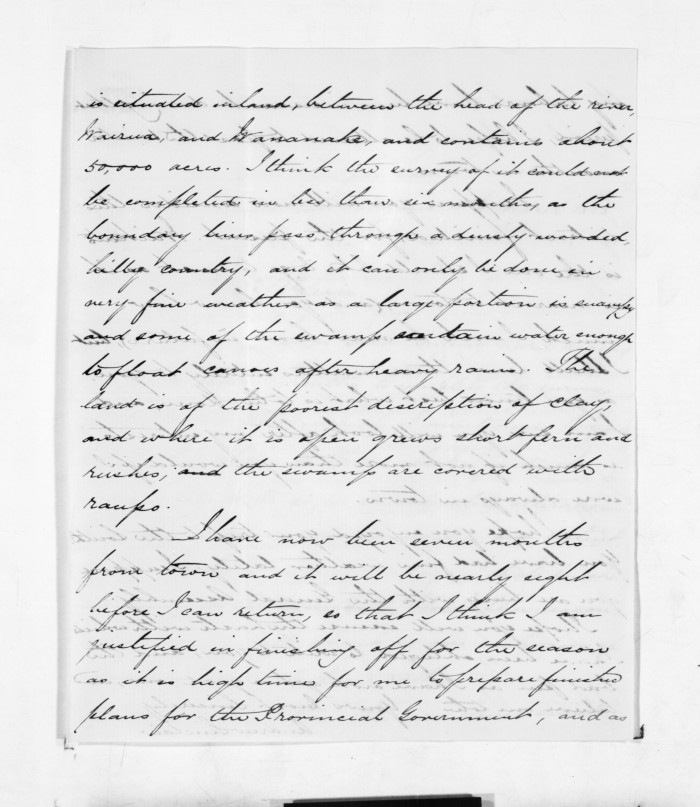 is situated inland, between the head of the river,
Wairua, and Wananake, and contains about
50,000 acres. I think the survey of it could not
be completed in less than six months, as the
boundary lines pass through a densely wooded,
hilly country, and it can only be done in
very fine weather as a large portion is swampy
and some of the swamps contain water enough
to float canoes after heavy rains. The
land is of the poorest description of clay,
and where it is open grows short fern and
rushes, and the swamps are covered with
raupo.
I have now been seven months
from town and it will be nearly eight
before I can return, so that I think I am
justified in finishing off for the season
as it is high time for me to prepare finished
plans for the Provincial Government, and as